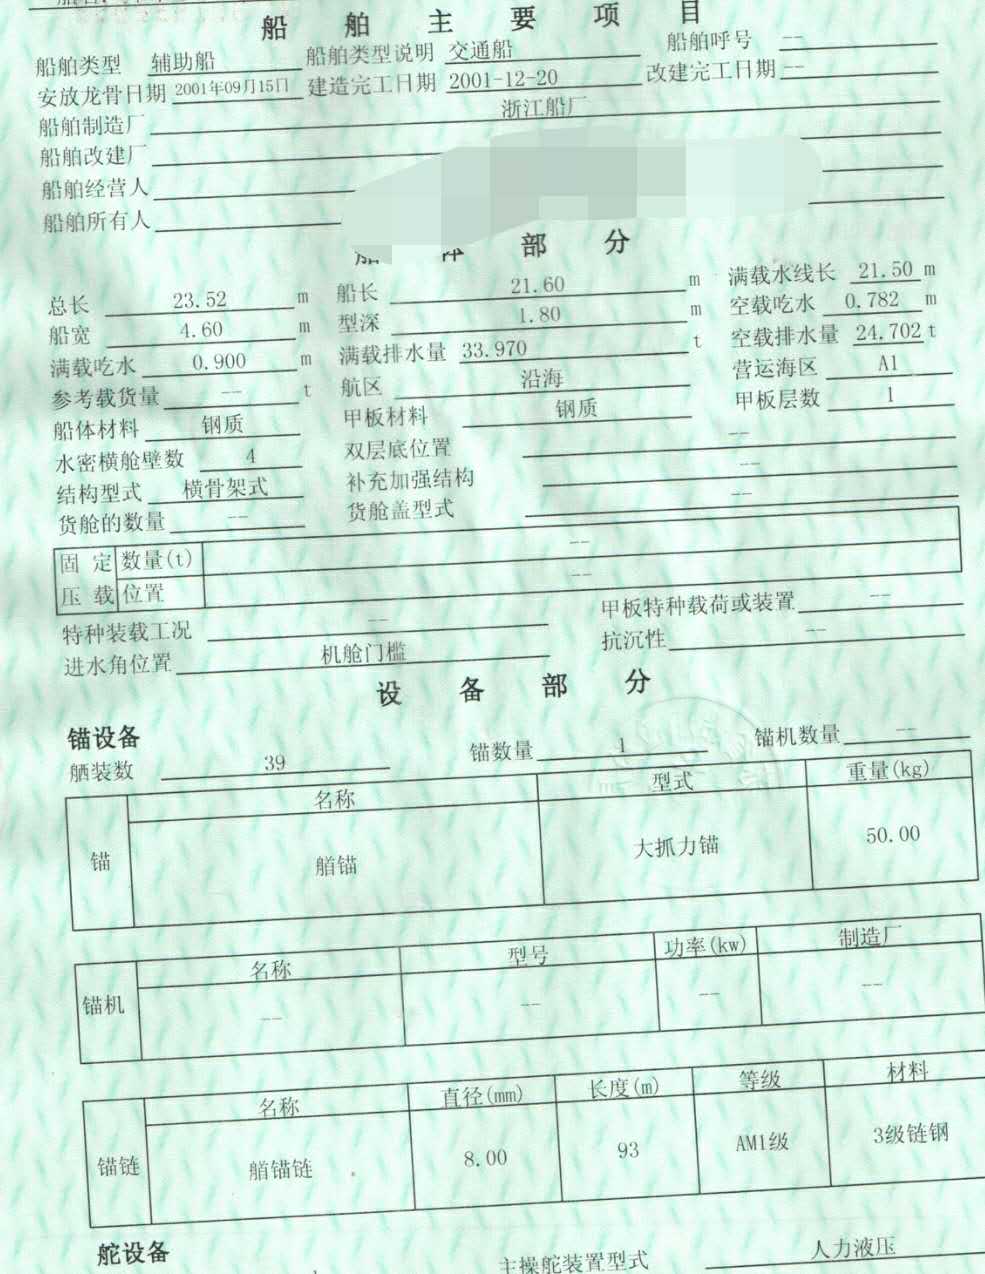 船舶主要项目
船舶类型 辅助船 船舶类型说明 交通船 船舶呼号 --
安放龙骨日期 2001年09月15日 建造完工日期 2001-12-20 改建完工日期 --
船舶制造厂 浙江船厂
船舶改建厂
船舶经营人
船舶所有人
船体部分
总长 23.52 m 船长 21.60 m 满载水线长 21.50 m
船宽 4.60 m 型深 1.80 m 空载吃水 0.782 m
满载吃水 0.900 m 满载排水量 33.970 t 空载排水量 24.702 t
参考载货量 -- t 航区 沿海 营运海区 A1
船体材料 钢质 甲板材料 钢质 甲板层数 1
水密横舱壁数 4 双层底位置 --
结构型式 横骨架式 补充加强结构 --
货舱的数量 -- 货舱盖型式 --
固定 数量(t) --
压载 位置 --
特种装载工况 -- 甲板特种载荷或装置 --
进水角位置 机舱门槛 抗沉性 --
设备部分
锚设备
舾装数 39 锚数量 1 锚机数量 --
名称 型式 重量(kg)
锚 艏锚 大抓力锚 50.00
名称 型号 功率(kw) 制造厂
锚机 -- -- -- --
名称 直径(mm) 长度(m) 等级 材料
锚链 艏锚链 8.00 93 AM1级 3级链钢
舵设备
主操舵装置型式 人力液压